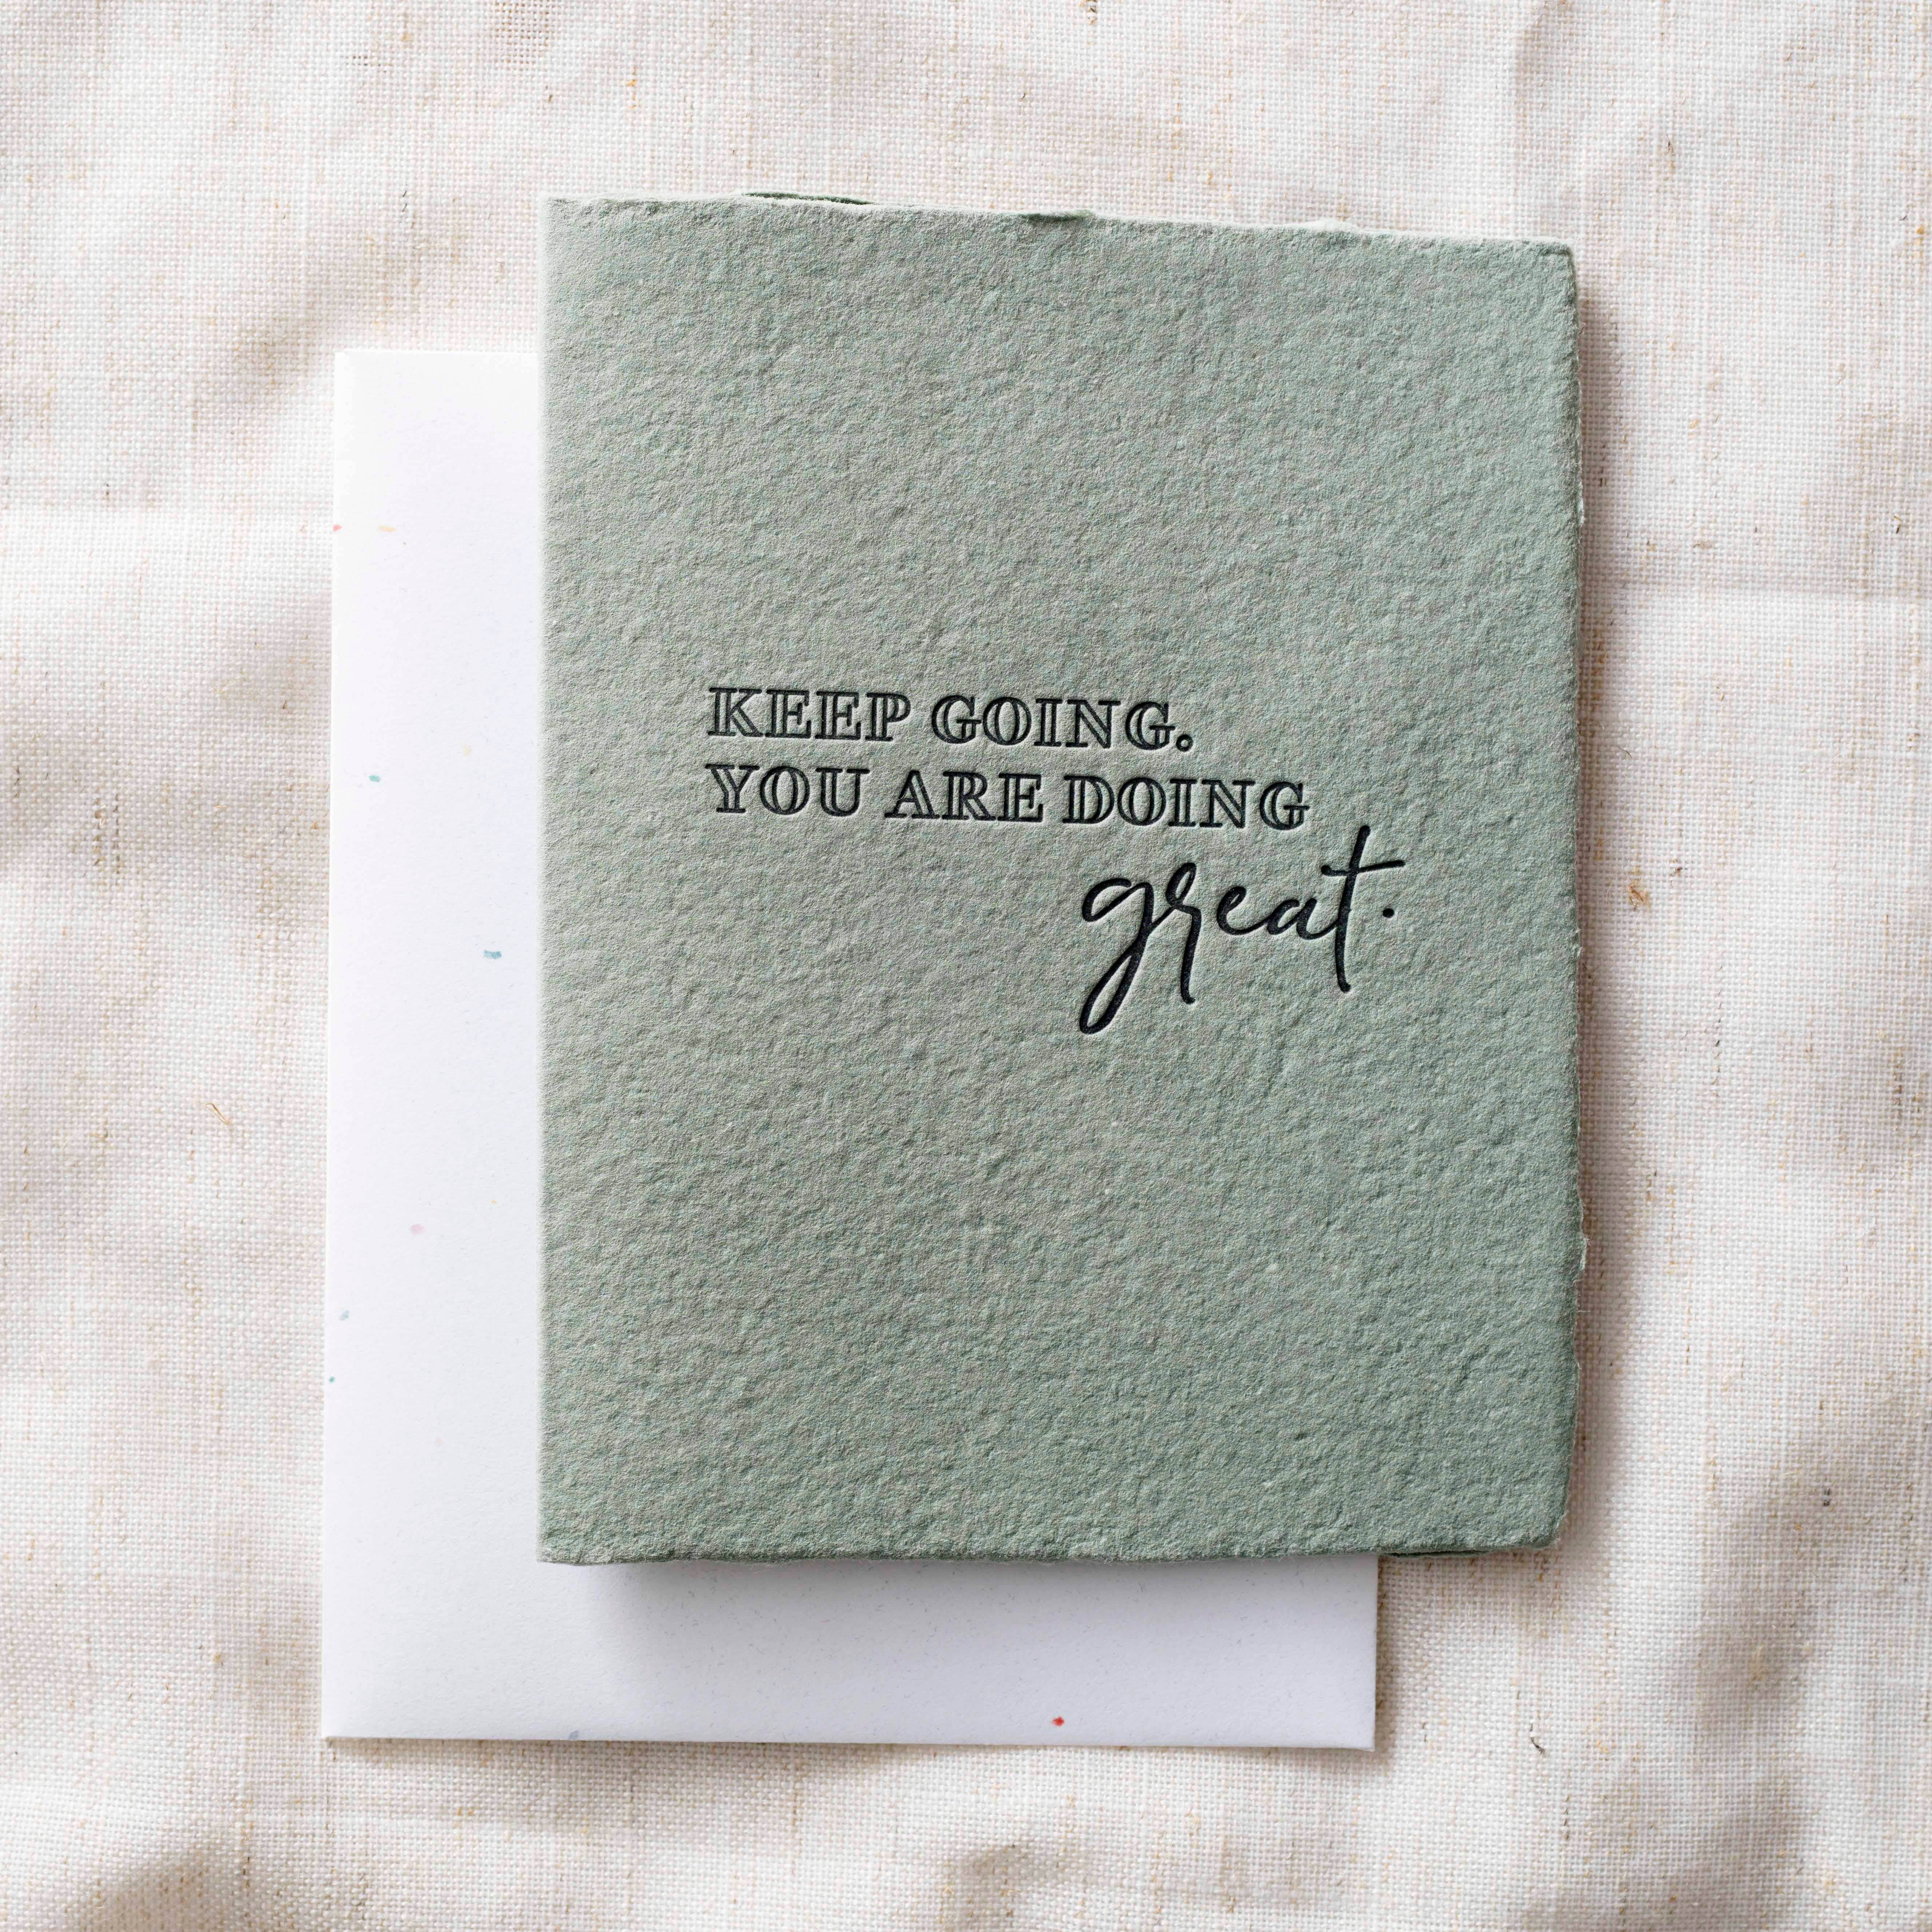 KEEP GOING.
YOU ARE DOING
great.